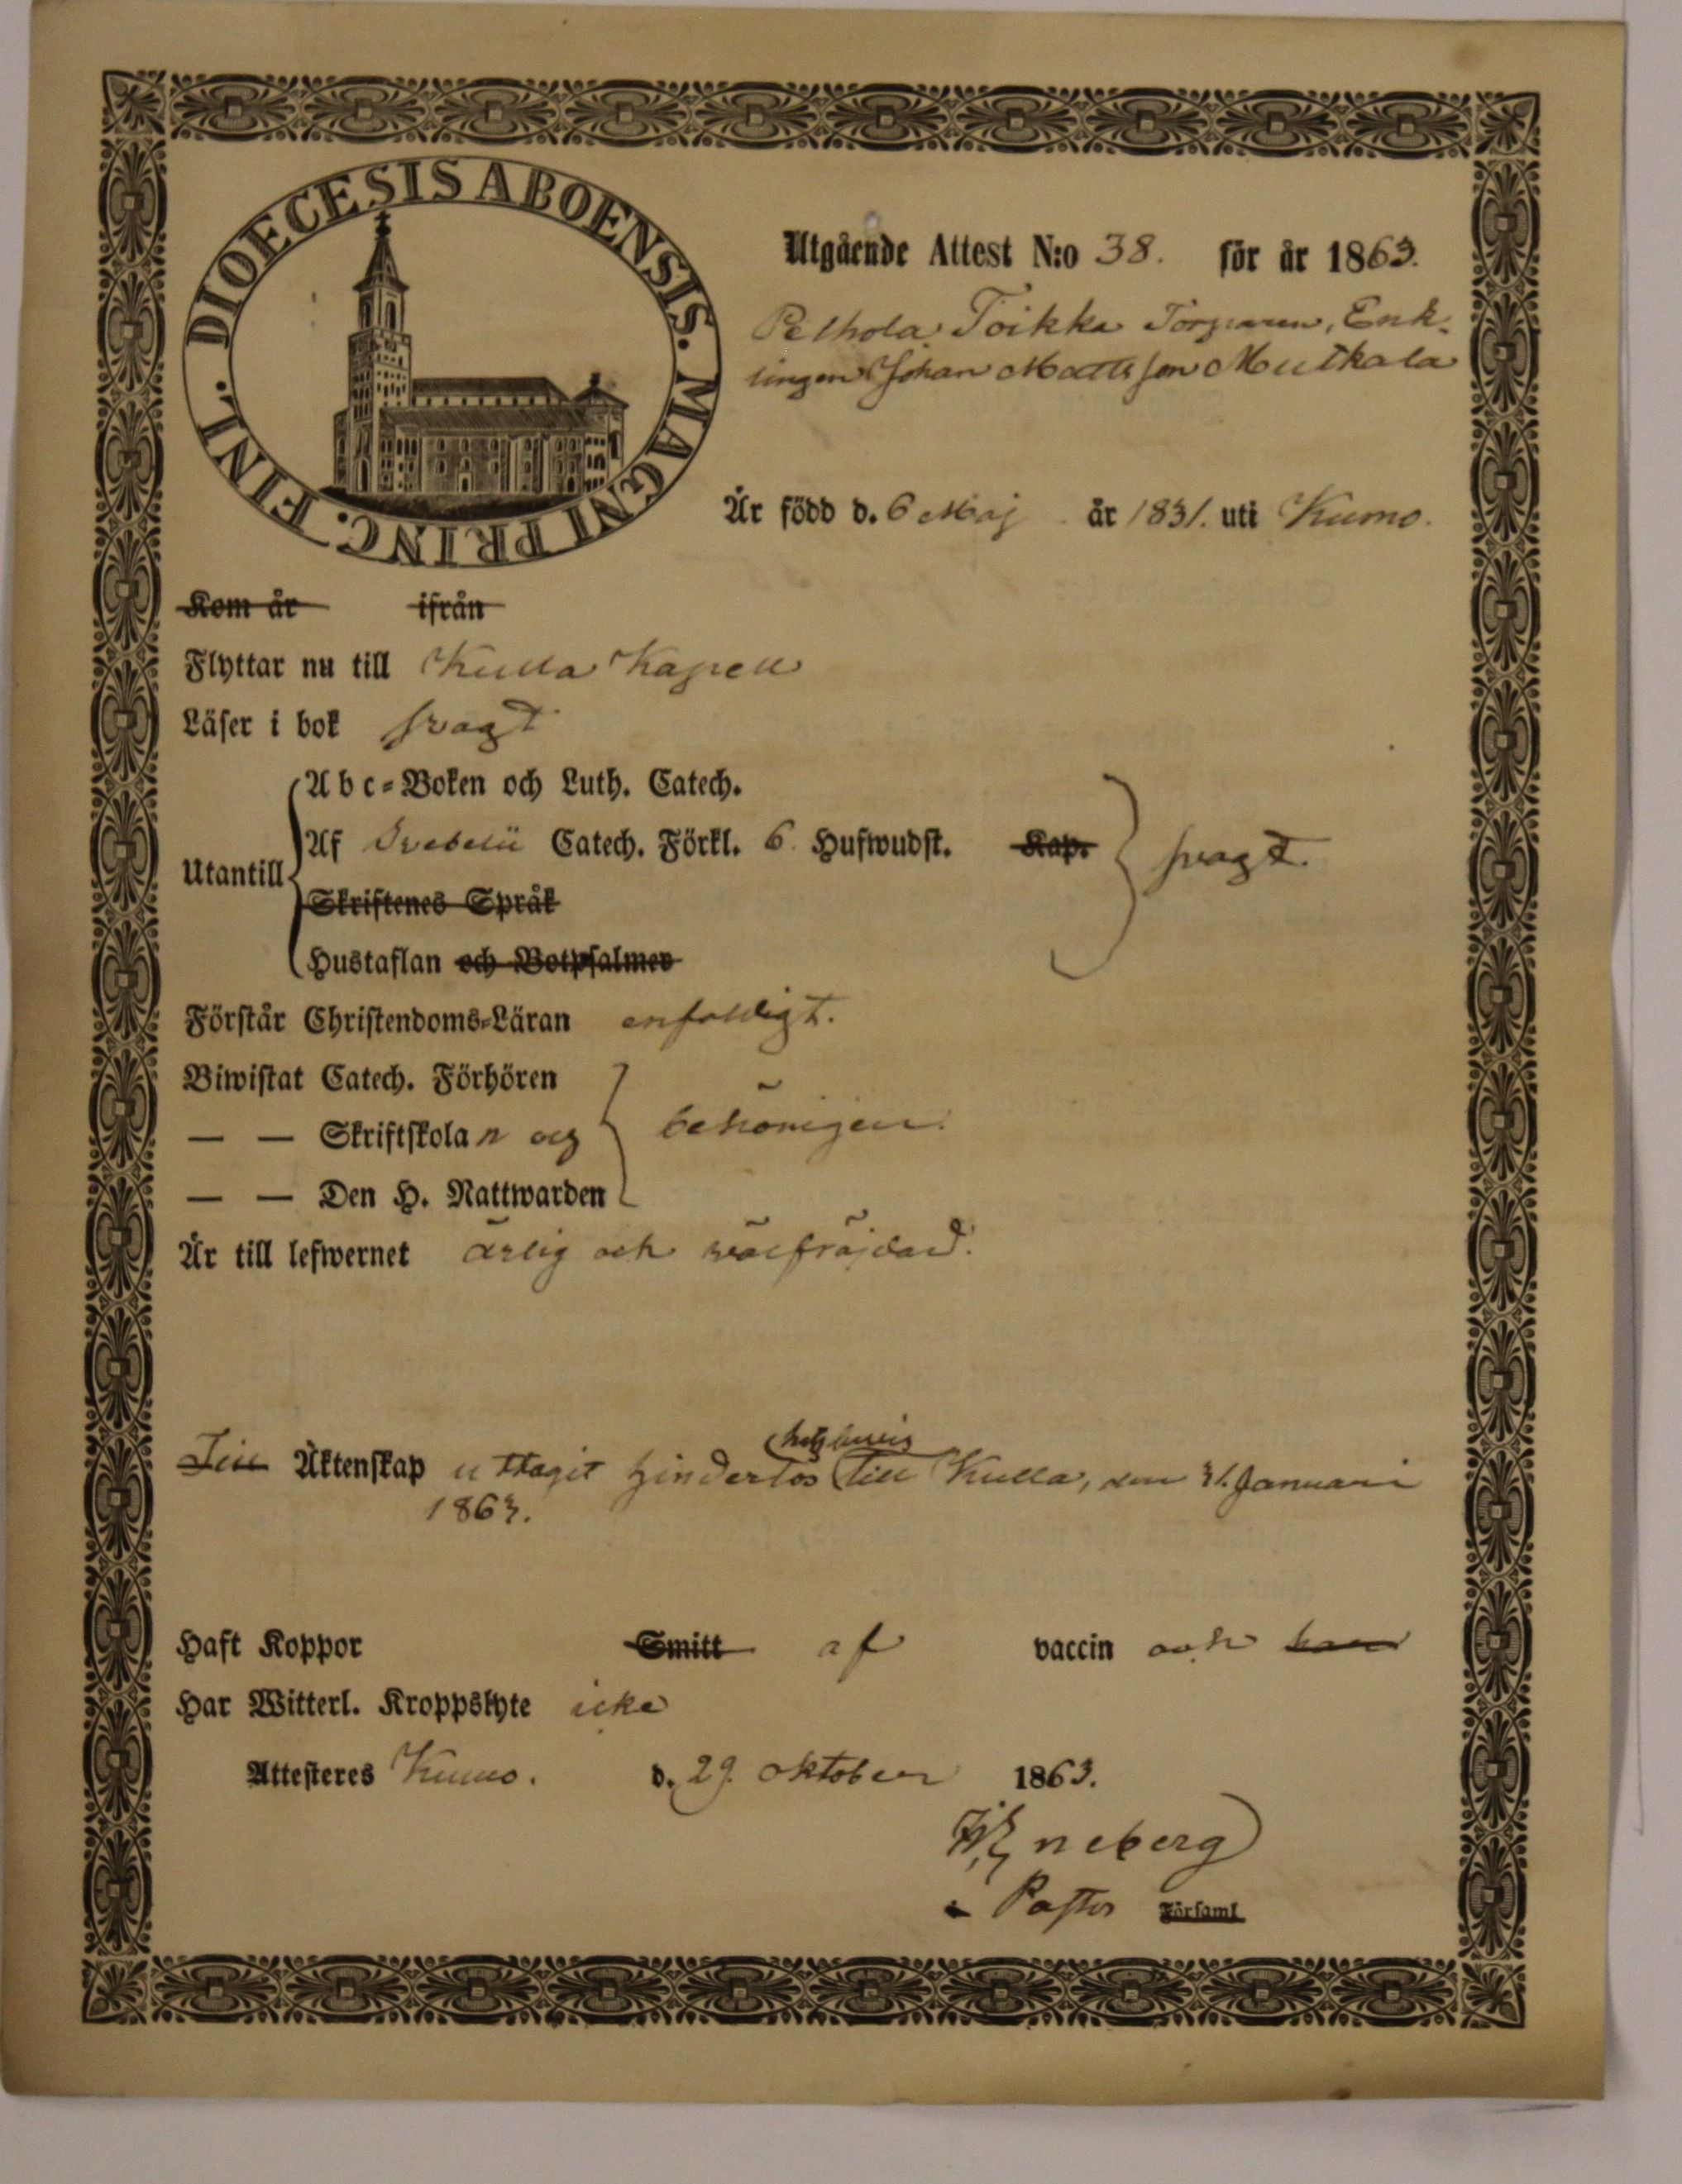 DIOECESIS ABOENSIS. MAGNI PRINC. FINL.
Utgående Attest N:o 38. för år 1863.
Pelhola Toikka Torparen, Enk-
lingen Johan Mattsson Mutkala
Är född d. 6 Maj år 1831. uti Kumo.
Kom år ifrån
Flyttar nu till Kulla Kapell
Läser i bok svagt
Utantill
Abc-Boken och Luth. Catech.
Af Svebelii Catech. Förkl. 6 Hufwudst. Kap. svagt.
Skriftenes Språk
Hustaflan och Botpsalmer
Förstår Christendoms-Läran enfaldigt.
Biwistat Catech. Förhören
— — Skriftskolan och behörigen.
— — Den H. Nattwarden
Är till lefwernet ärlig och välfräjdad.
Till Äktenskap uttagit hinderlös till Kulla, den 31. Januari
1863.
Haft Koppor Smitt af vaccin och
Har Witterl. Kroppslyte icke
Attesteres Kumo. d. 29. oktober 1863.
Eneberg
Pastor Församl